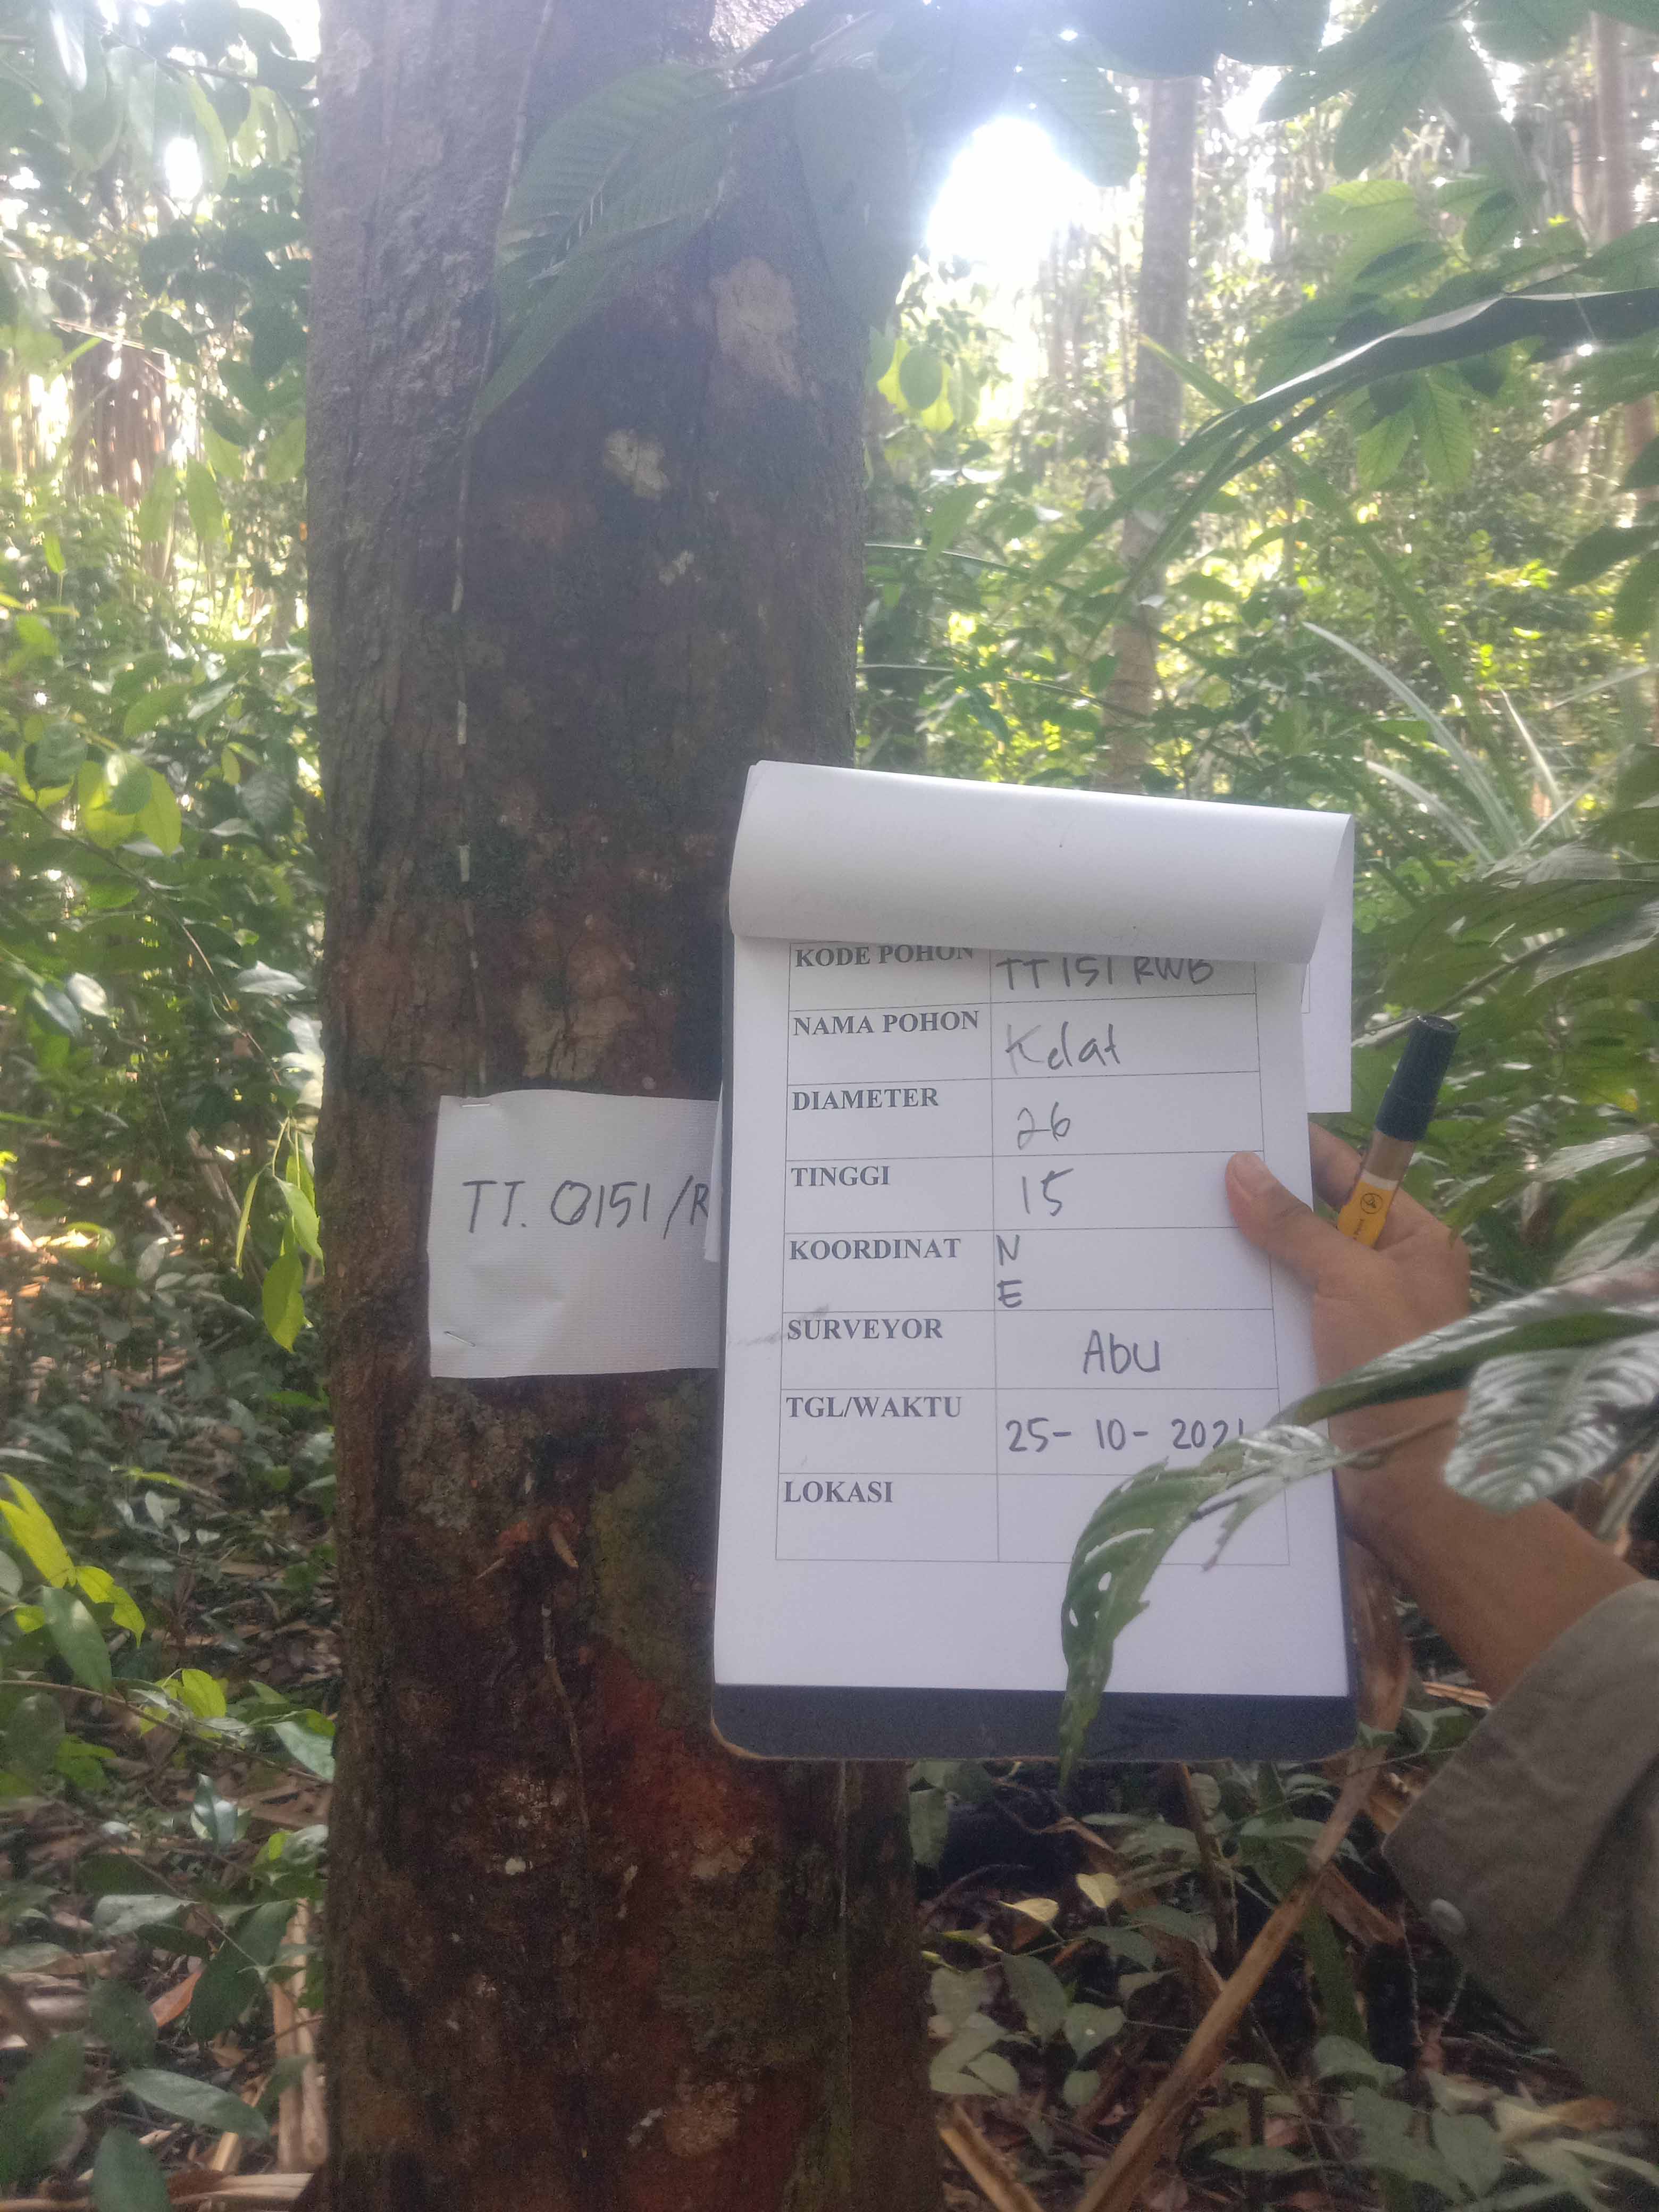 KODE POHON TT 151 RWB
NAMA POHON Kelat
DIAMETER 26
TINGGI 15
KOORDINAT N
E
SURVEYOR Abu
TGL/WAKTU 25-10-2021
LOKASI
TT. 0151/R